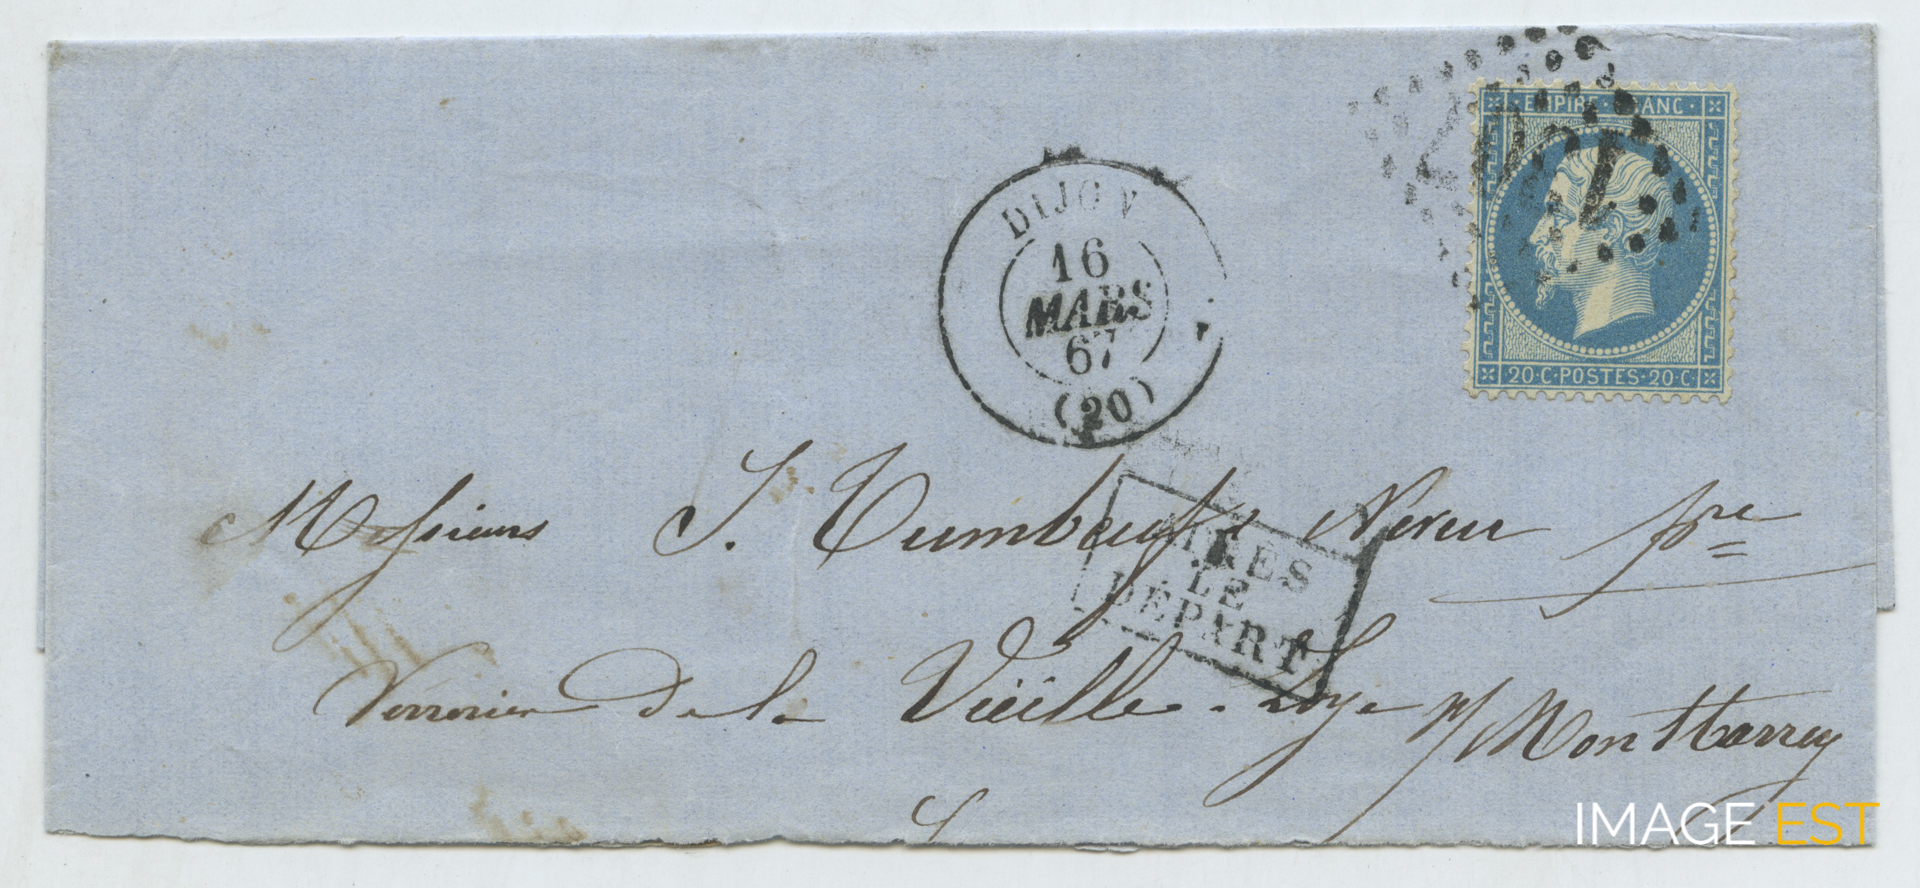 EMPIRE · FRANC ·
20 · C · POSTES · 20 · C
DIJON
16
MARS
67
(20)
APRES
LE
DÉPART
Messieurs J. Tumbeuf & Neveu
Verrerier de la Vieille-Loye p/ Montbarrey
IMAGE EST